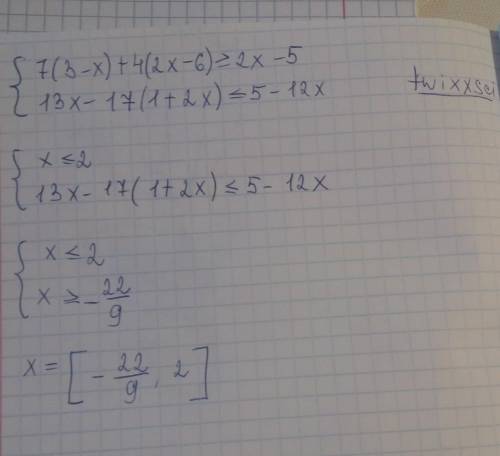 { 7(3-x)+4(2x-6)≥2x-5
13x-17(1+2x)≤5-12x
twixxsei
{ x≤2
13x-17(1+2x)≤5-12x
{ x≤2
x≥-22/9
x=[-22/9, 2]